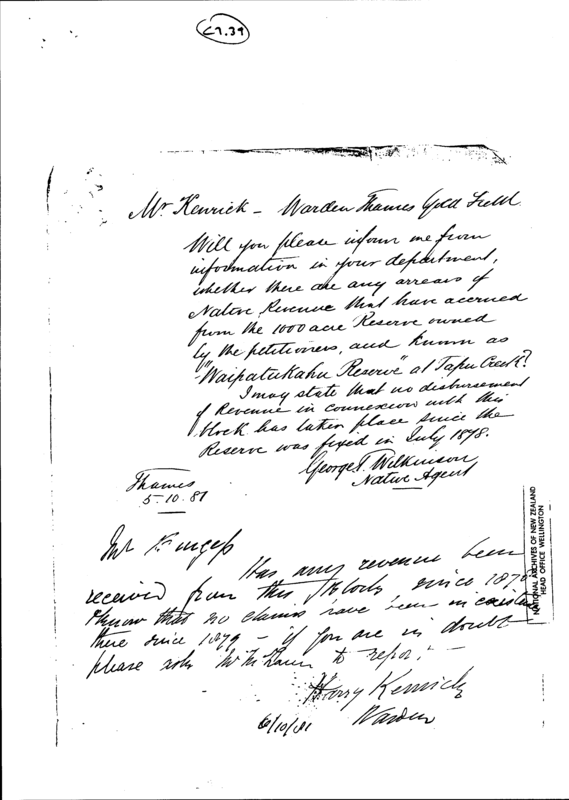 C7.39
Mr Kenrick - Warden Thames Gold Field.
Will you please inform me from
information in your department,
whether there are any arrears of
Native Revenue that have accrued
from the 1000 acre Reserve owned
by the petitioners, and known as
"Waipatukahu Reserve" at Tapu Creek?
I may state that no disbursement
of Revenue in connexion with this
block has taken place since the
Reserve was fixed in July 1878.
George T. Wilkinson
Native Agent
Thames
5.10.81
NATIONAL ARCHIVES OF NEW ZEALAND
HEAD OFFICE WELLINGTON
Mr
Has any revenue been
received from this Block since 1878
I know that no claims have been in existence
there since 1879 - if you are in doubt
please ask Mr to report -
Harry Kenrick
Warden
6/10/81